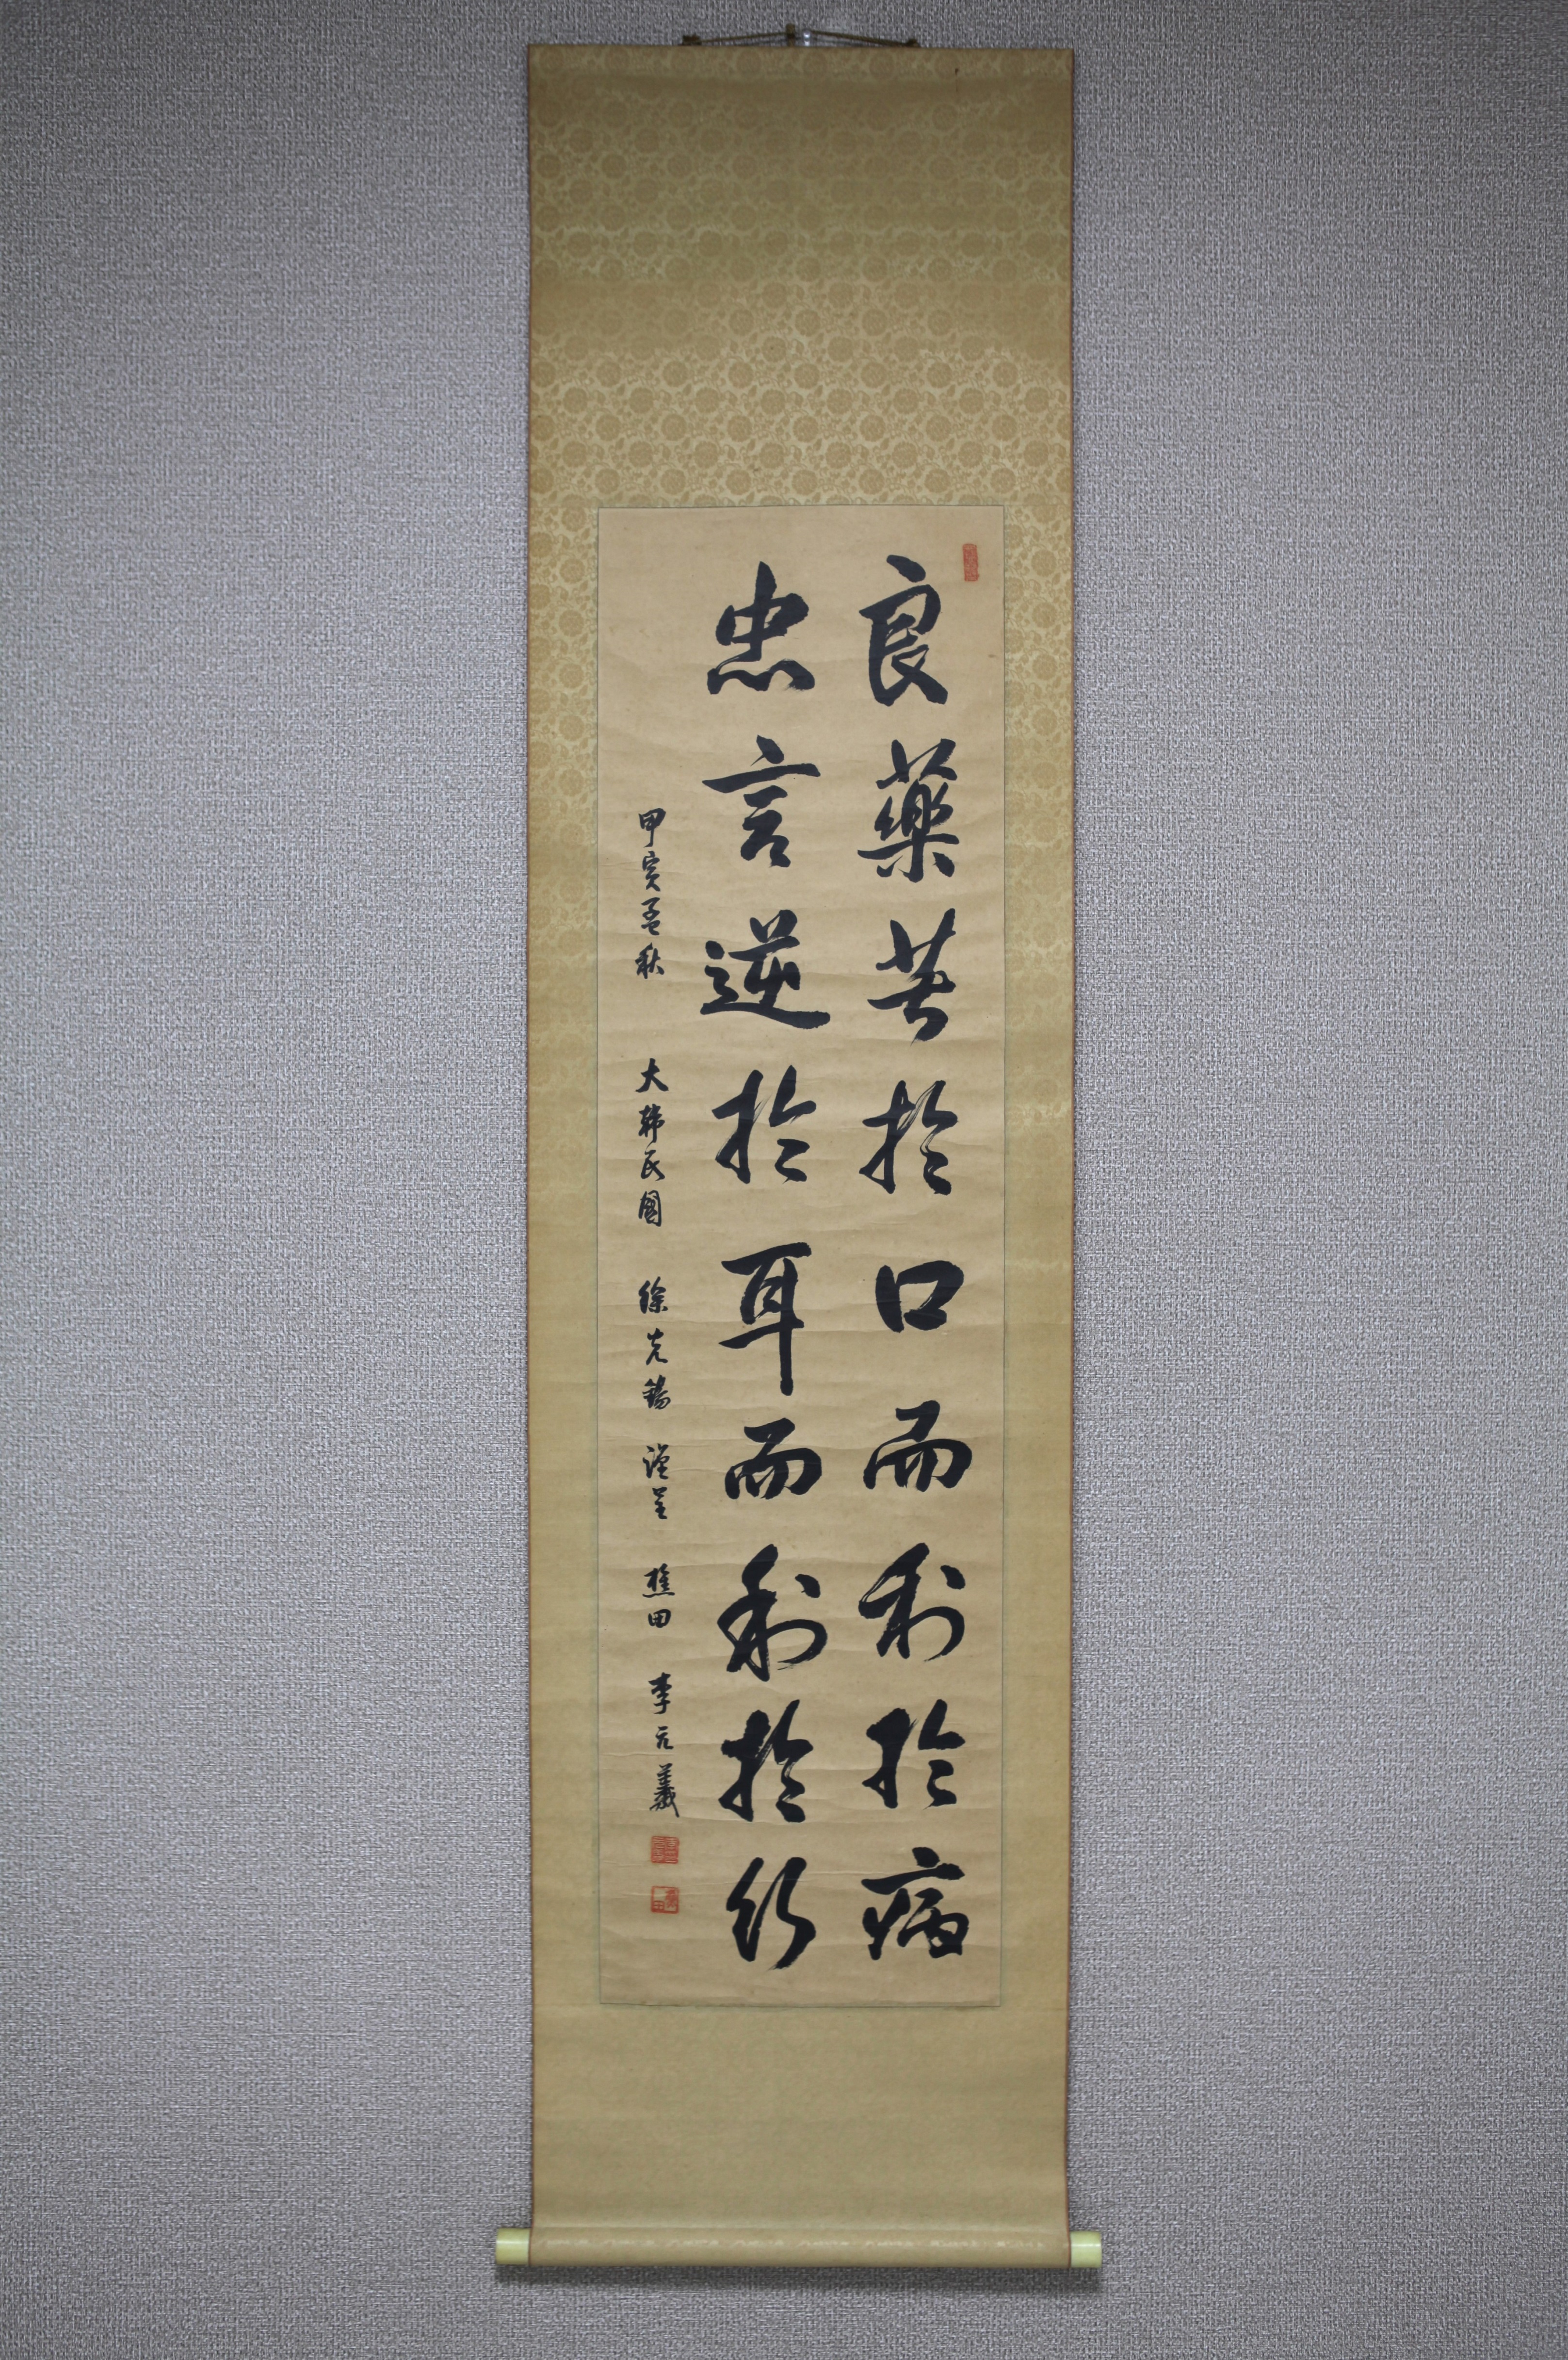 良藥苦於口而利於病
忠言逆於耳而利於行
甲寅孟秋 大韓民國 徐克錫 謹呈 樵田 李元羲